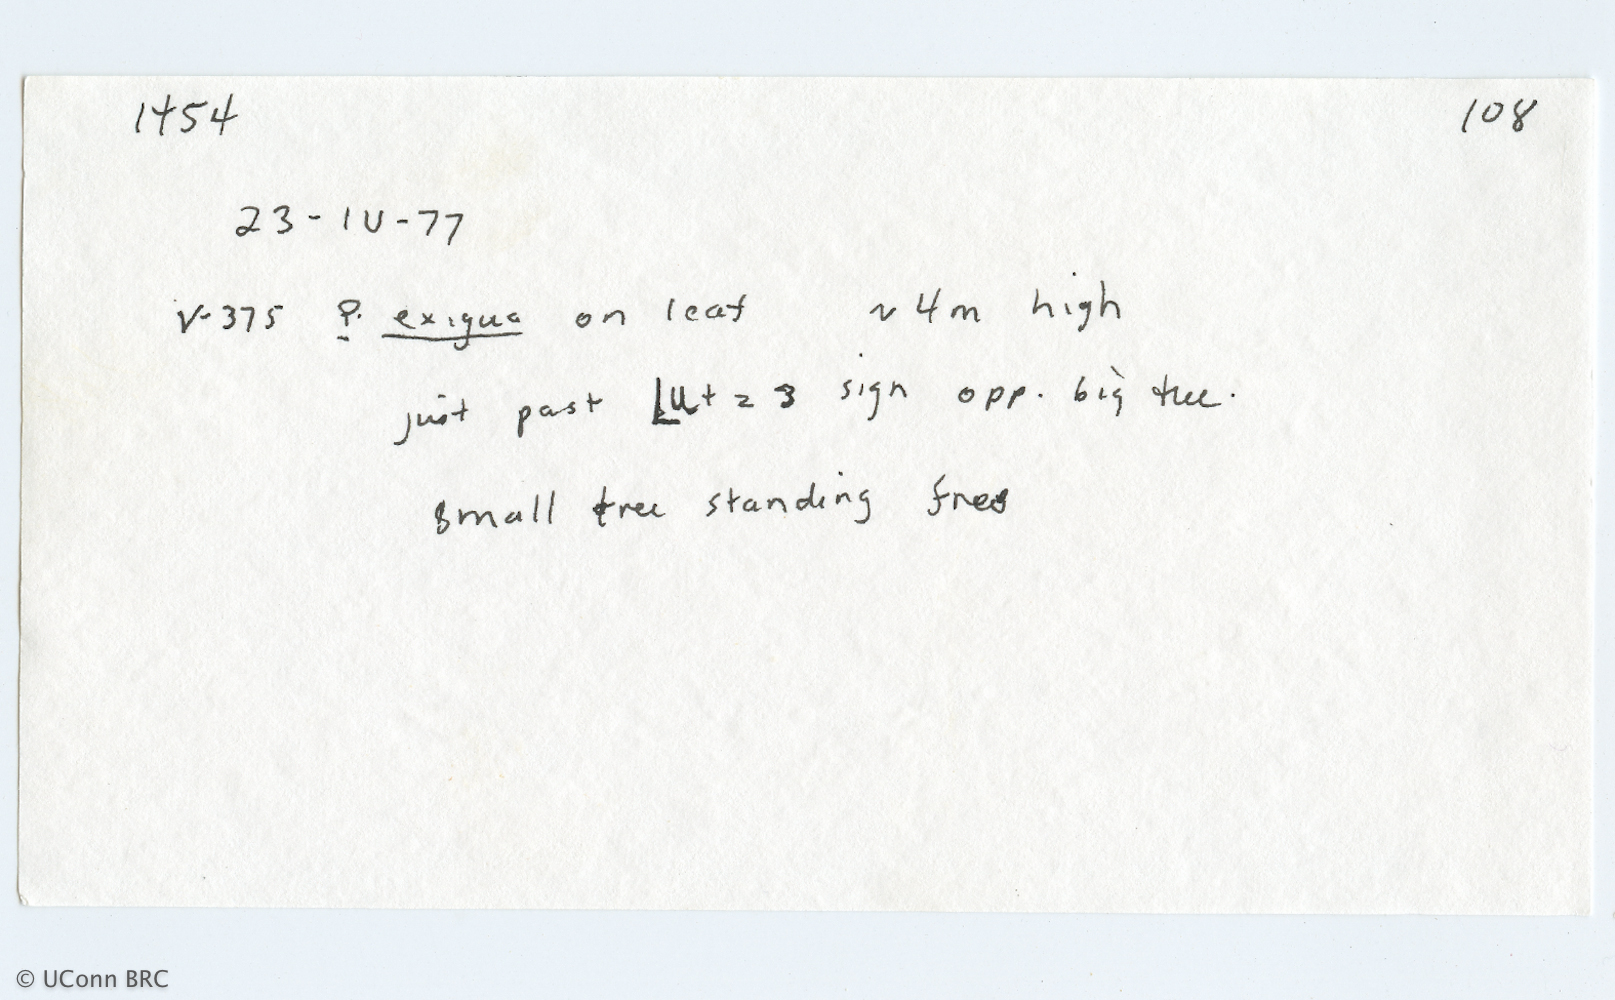 1454 108
23-IV-77
V-375 P. exigua on leaf ~ 4m high
just past Lutz 3 sign opp. big tree.
small tree standing free
© UConn BRC